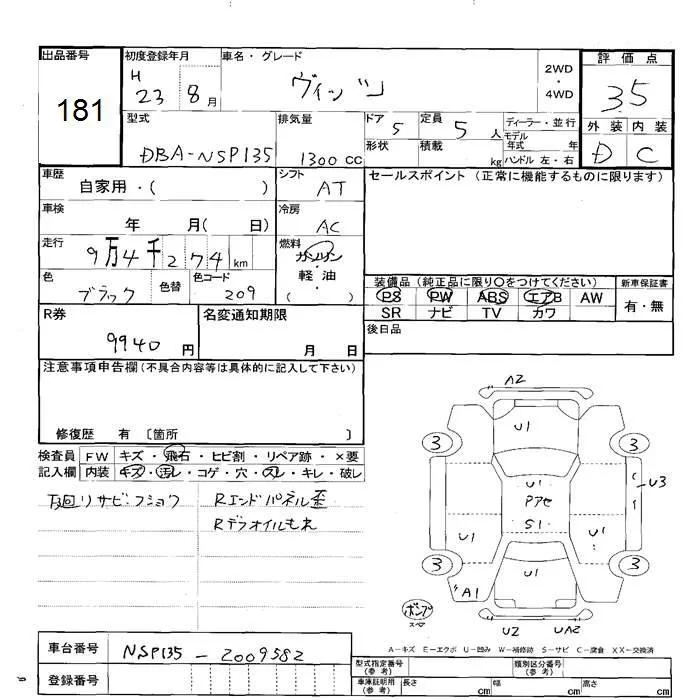 出品番号
181
初度登録年月
H
23 8月
車名・グレード
ヴィッツ
2WD
・
4WD
評価点
3.5
外装 内装
D C
型式
DBA-NSP135
排気量
1300 CC
ドア
5
定員
5人
ディーラー・並行
モデル
年式 年
形状
積載
kg
ハンドル 左・右
車歴
自家用・( )
シフト
AT
セールスポイント (正常に機能するものに限ります)
車検
年 月( 日)
冷房
AC
走行
9万4千274km
燃料
ガソリン
軽・油
( )
色
ブラック
色替
色コード
209
装備品 (純正品に限り○をつけてください)
PS PW ABS エアB AW
SR ナビ TV カワ
新車保証書
有・無
R券
9940円
名変通知期限
月 日
後日品
注意事項申告欄(不具合内容等は具体的に記入して下さい)
修復歴 有 〔箇所 〕
検査員
記入欄
FW キズ・飛石・ヒビ割・リペア跡・×要
内装 キズ・汚レ・コゲ・穴・スレ・キレ・破レ
下廻リサビ・フショク
Rエンドパネル歪
Rデフオイルもれ
A2
U1
3 3
U1
Pアセ
S1
U3
U1
U1
3 3
U1
A1
ポンプ
スペア
U2
UA2
A-キズ E-エクボ U-凹み W-補修跡 S-サビ C-腐食 XX-交換済
車台番号
NSP135-2009582
登録番号
型式指定番号
(参考)
類別区分番号
(参考)
車庫証明用
(参考)
長さ cm
幅 cm
高さ cm